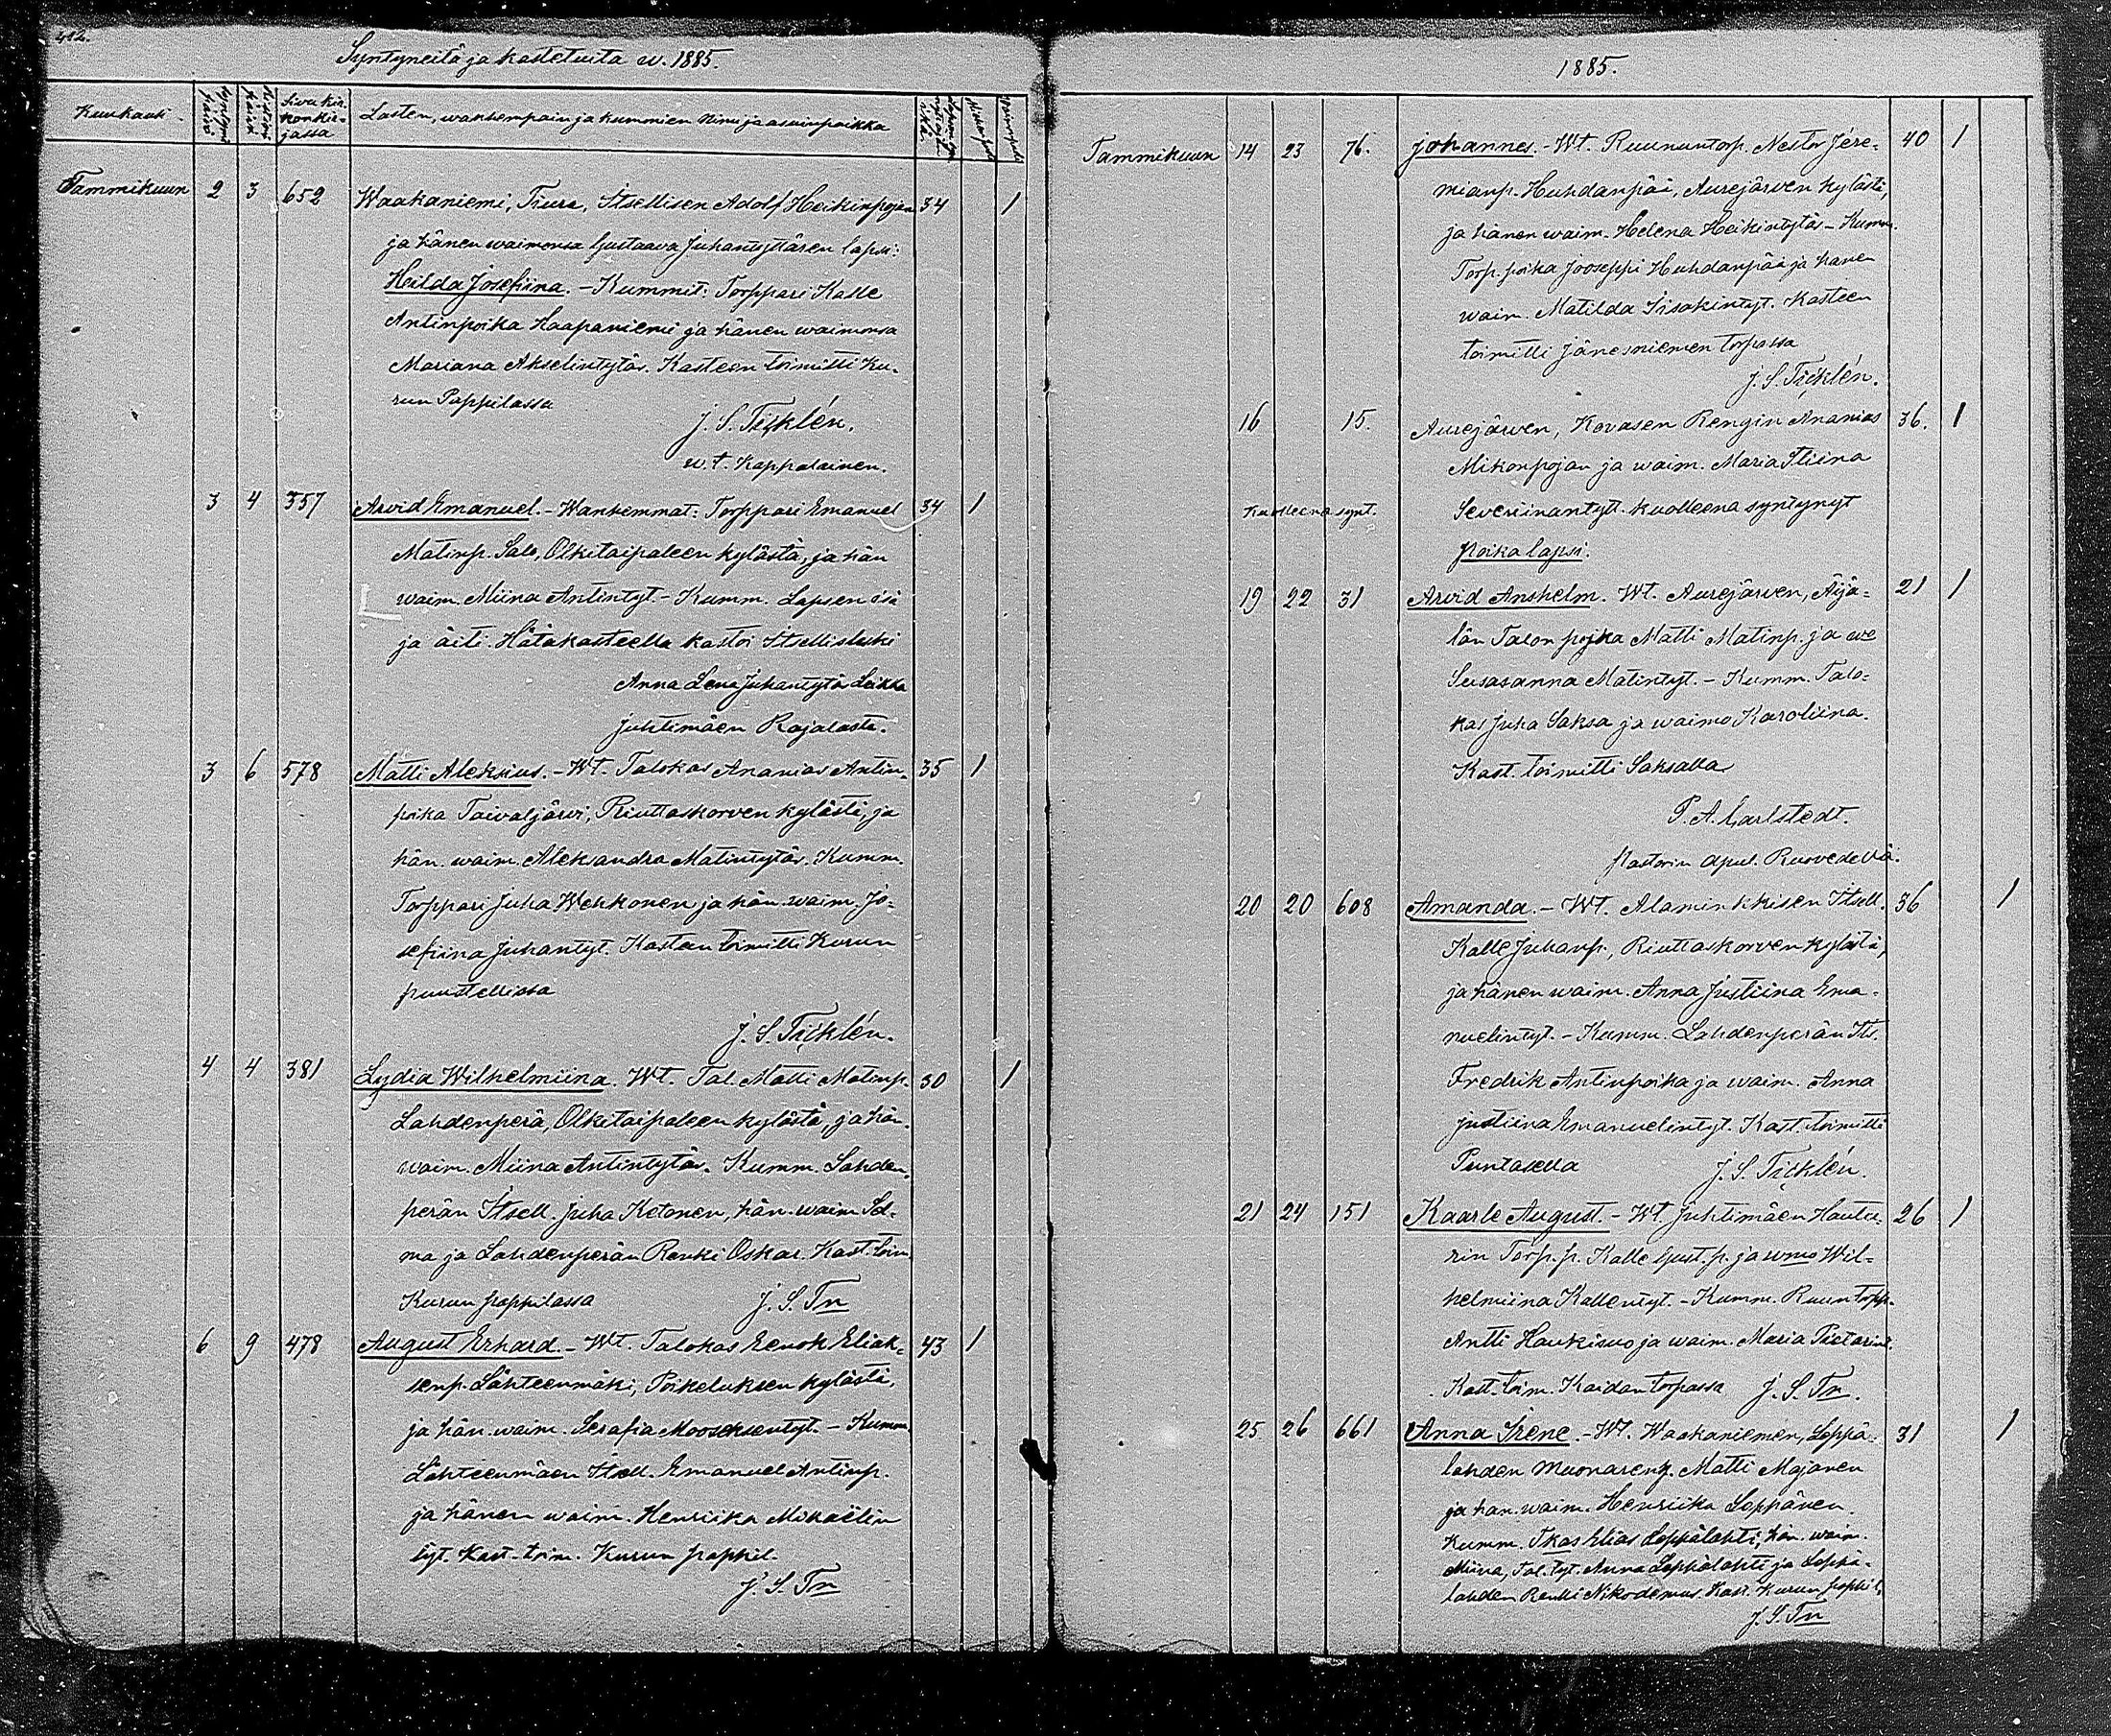 412.
Syntyneitä ja kastetuita w. 1885.
Kuukausi.
Sivu kir.
konkir-
jassa
Lasten, wanhempain ja kummien nimi ja asuinpaikka
Tammikuun 2 3 652 Waakaniemi, Itsellisen Adolf Heikinpojan 34 1
ja hänen waimonsa Gustaava Juhantyttären lapsi:
Heilda Josefiina. - Kummit: Torppari Kalle
Antinpoika Haapaniemi ja hänen waimonsa
Mariana Akselintytär. Kasteen toimitti Ku-
run Pappilassa
J. S. Ticklén.
w.t. Kappalainen.
3 4 357 Arvid Emanuel. - Wanhemmat: Torppari Emanuel 34 1
Matinp. Salo, Olkitaipaleen kylästä, ja hän
waim. Miina Antintyt. - Kumm. Lapsen isä
ja äiti. Hätäkasteella kastoi Itsellisleski
Anna Lena Juhantytä Leikka
Juhtimäen Rajalasta.
3 6 578 Matti Aleksius. - Wt. Talokas Ananias Antin- 35 1
poika Taivaljärvi, Riuttaskorven kylästä, ja
hän. waim. Aleksandra Matintytär. Kumm.
Torppari Juha Wehkonen ja hän. waim. Jo-
sefiina Juhantyt. Kasteen toimitti Kurun
puustellissa
J. S. Ticklén.
4 4 381 Lydia Wilhelmiina. Wt. Tal. Matti Matinp. 30 1
Lahdenperä, Olkitaipaleen kylästä, ja hän.
waim. Miina Antintytär. Kumm. Lahden-
perän Itsell. Juha Ketonen, hän. waim Sel-
ma ja Lahdenperän Renki Oskar. Kast. toim.
Kurun pappilassa J. S. Tn
6 9 478 August Erhard. - Wt. Talokas Eenok Eliak- 43 1
senp. Lähteenmäki, Poikeluksen kylästä,
ja hän. waim. Serafia Mooseksentyt. - Kumm
Lähteenmäen Itsell. Emanuel Antinp.
ja hänen waim. Henriika Mikaëlin
tyt. Kast. toim. Kurun pappil.
J. S. Tn
1885.
Tammikuun 14 23 76. Johannes. - Wt. Ruununtorp. Nestor Jere- 40 1
mianp. Huhdanpää, Aurejärven kylästä,
ja hänen waim. Helena Heikintytär - Kumm.
Torp. poika Jooseppi Huhdanpää ja hänen
waim. Matilda Iisakintyt. Kasteen
toimitti Jänesniemen torpassa
J. S. Ticklén.
16 15. Aurejärven, Kovasen Rengin Ananias 36. 1
Mikonpojan ja waim. Maria Stiina
Kuolleena synt. Severiinantyt. kuolleena syntynyt
poikalapsi.
19 22 31 Arvid Anshelm. Wt. Aurejärven, Äijä- 21 1
län Talon poika Matti Matinp. ja wo
Susasanna Matintyt. - Kumm. Talo-
kas Juha Saksa ja waimo Karoliina.
Kast. toimitti Saksalla
P. A. Carlstedt.
Pastorin apul. Ruovedellä.
20 20 608 Amanda. - Wt. Alaminkkisen Itsell. 36 1
Kalle Juhanp., Riuttaskorven kylästä,
ja hänen waim. Anna Justiina Ema-
nuelintyt. - Kumm. Lahdenperän Its.
Fredrik Antinpoika ja waim. Anna
Justiina Emanuelintyt. Kast. toimitti
Puntasella J. S. Ticklén.
21 24 151 Kaarle August. - Wt. Juhtimäen Hauta- 26 1
rin Torp. p. Kalle Gust. p. ja wmo Wil-
helmiina Kallentyt. - Kumm. Ruun torpp.
Antti Haukisuo ja waim. Maria Pietarint.
Kast. toim. Kaidan torpassa J. S. Tn.
25 26 661 Anna Irene. - Wt. Waakaniemen, Leppä- 31 1
lahden muonareng. Matti Majanen
ja hän. waim. Henriika Leppänen
Kumm. Tkas Elias Leppälahti, hän. waim.
Miina, Tal. tyt. Anna Leppälahti ja Leppä-
lahden Renki Nikodemus. Kast. Kurun pappil.
J. S. Tn